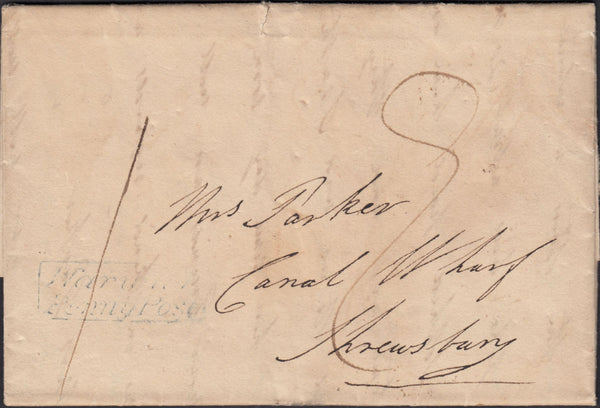 1
8
Mrs Parker
Canal Wharf
Shrewsbury
Penny Post